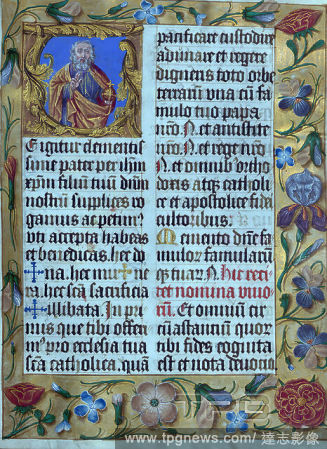 E igitur clementis
sime pater per ihm
xpm filiū tuū dūm
nostrū supplices ro
gamus ac petim'
vti accepta habeas
et benedicas. hec do
✝na. hec mu✝ne
ra. hec scā sacrificia
✝illibata. In pri
mis que tibi offeri
me' pro ecclesia tua
scā catholica. quā
pacificare custodire
adunare et regere
digneris toto orbe
terrarū vna cū fa
mulo tuo papa
nrō. N. et antistite
nrō. N. et rege nrō.
N. et omnib' ortho
doxis atq3 catholi
ce et apostolice fidei
cultoribus.
Memento dn̄e fa
mulor famularū
q3 tuar. N. Hic reci
tet nomina vivo
rū. Et omniū cir
cūastanciū quor
tibi fides cognita
est et nota devocio
TPG
www.tpgnews.com/ 達志影像